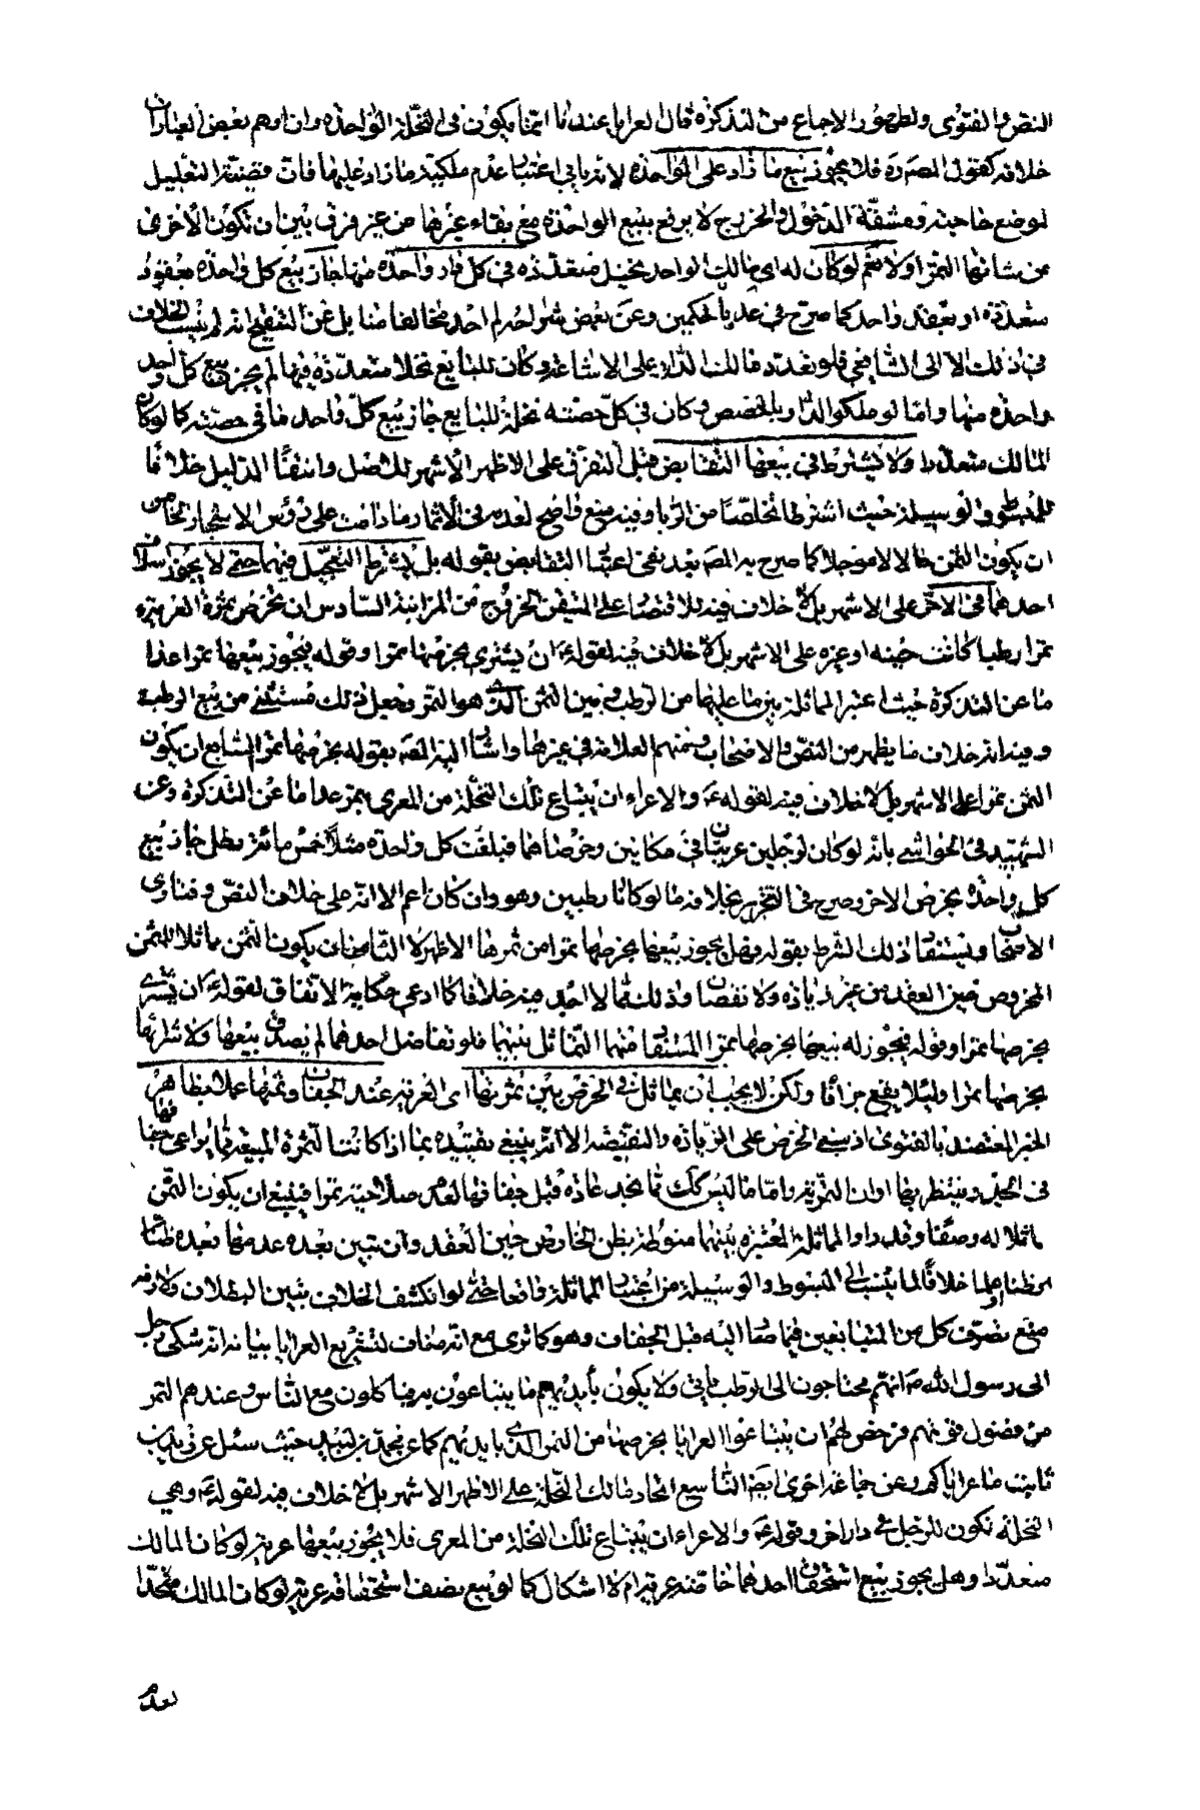 النص والفتوى ولظهور الاجماع من التذكرة قال العرايا عندنا انما يكون فى النخلة الواحدة وان اوهم بعض العبارات
خلافه كقول المصَ ره فلا يجوز بيع ما زاد على الواحدة لانه يابى اعتبار عدم ملكيته ما زاد عليها فان قضيته التعليل
لوضع حاجته ومشقّة الدخول والخروج لا يرفع ببيع الواحدة مع بقاء غيرها من غير فرق بين ان تكون الأخرى
من شانها التمرا ولا نعم لو كان له اى مالك الواحد نخيل متعددة فى كل دار واحدة منها جاز بيع كل واحدة بعقود
متعددة او بعقد واحد كما صرح فى عد بالحكمين وعن بعض شراحه لم اجد مخالفا منا بل عن التنقيح انه لم ينسب الخلاف
فى ذلك الا الى الشافعي فلو تعدد مالك الدار على الاشاعة وكان للبايع نخلا متعددة فيها لم يجز بيع كل واحد
واحدة منها واما لو ملكوا الدار بالحصص وكان فى كلّ حصته نخلة للبايع جاز بيع كلّ واحد ما فى حصته كما لو كان
المالك متعددا ولا يشترط فى بيعها التقابض قبل التفرّق على الاظهر الأشهر للاصل وانتفاء الدليل خلافا
للمبسوط والوسيلة حيث اشترطا تخلصا من الربا وفيه منع واضح لعدمه فى الأثمار ما دامت على رؤس الاشجار الخامس
ان يكون الثمن حالا لا مؤجلا كما صرح به المصَ بعد نفى اعتبار التقابض بقوله بل يشترط التعجيل فيهما حتى لا يجوز اسلاف
احدهما فى الآخر على الاشهر بل لا خلاف فيه للاقتصار على المتيقن الخروج من المزابنة السادس ان يخرص ثمرة العرية
تمرا رطبا كانت حينه او غيره على الاشهر بل لا خلاف فيه لقوله عَ ان يشترى بخرصها تمرا وقوله فيجوز بيعها تمرا عدا
ما عن التذكرة حيث اعتبر المماثلة بين ما عليها من الرطب وبين الثمن الذى هو التمر وجعل ذلك مستثنى من بيع الرطب
وفيه انه خلاف ما يظهر من النص والاصحاب ومنهم العلامة فى غيرها واشار اليه المصَ بقوله بخرصها تمرا السابع ان يكون
الثمن تمرا على الاشهر بل لا خلاف فيه لقوله عَ والاعراء ان يبتاع تلك النخلة من المعرى بتمر عدا ما عن التذكرة وعن
الشهيد فى الحواشى بانه لو كان لرجلين عريتان فى مكانين وخرصاهما فبلغت كل واحدة مثلا خمس مائة رطل جاز بيع
كل واحدة بخرص الاخر وصرح فى التحرير بخلافه ما لو كانا رطبين وهو وان كان اعم الا انه على خلاف النصّ وفتاوى
الاصحاب ويستفاد ذلك الشرط بقوله وهل يجوز بيعها بخرصها تمرا من ثمرها الاظهر لا الثامن ان يكون الثمن مماثلا للثمن
المخروص حين العقد من غير زيادة ولا نقصان وذلك مما لا اجد فيه خلافا كما ادعى حكاية الاتفاق لقوله عَ ان يشترى
بخرصها تمرا وقوله فيجوز له بيعها بخرصها تمرا المستفاد منهما التماثل بينهما فلو تفاضل احدهما لم يصدق بيعها ولا شرائها
بخرصها تمرا ولئلا يقع جزافا ولكن لا يجب ان يماثل فى الخرص بين ثمرتها اى العرية عند الجفاف وثمنها عملا بظاهر
الخبر المعتضد بالفتوى اذ ينبئ الخرص على الزيادة والنقيصة الا انه ينبغى تقييده بما اذا كانت الثمرة المبيعة مما يراعى جفافها
فى النخل وينتظر بها اوان التمرية واما ما ليس كك مما يجد عادة قبل جفافها لعدم صلاحيته تمرا فينبغى ان يكون الثمن
ماثلا له وصفا وقدرا والمماثلة المعتبرة بينهما منوطة بظن الخارص حين العقد وان تبين بعده عدمها
خلافا لما ينسب الى المبسوط والوسيلة من اعتبار المماثلة واقعا حتى لو انكشف الخلاف تبين البطلان ولازمه
منع تصرّف كل من المتبايعين فيما صار اليه قبل الجفاف وهو كما ترى مع انه مناف لتشريع العرايا بيانه انه شكى رجل
الى رسول اللّه صَ انهم محتاجون الى الرطب ياتى ولا يكون بأيديهم ما يبتاعون به فياكلون مع النّاس وعندهم التمر
من فضول قوتهم فرخص لهم ان يبتاعوا العرايا بخرصها من التمر الذى بايديهم كما عن محمد بن لبيد حيث سئل عن زيد بن
ثابت ما عراياكم وعن جماعة اخرى ايضَ التاسع اتحاد مالك النخلة على الاظهر الاشهر بل لا خلاف فيه لقوله عَ وهي
النخلة تكون للرجل فى دار اخر وقوله عَ والاعراء ان يبتاع تلك النخلة من المعرى فلا يجوز بيعها عرية لو كان المالك
متعدّدا وهل يجوز بيع استحقاق احدهما خاصة عرية ام لا اشكال كما لو بيع نصف استحقاقه عرية لو كان المالك متحدا
لعدم